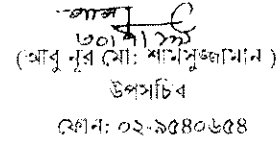 ৩০/৭/১৯
(আবু নূর মো: শামসুজ্জামান)
উপসচিব
ফোন: ০২-৯৫৪০৬৫৪